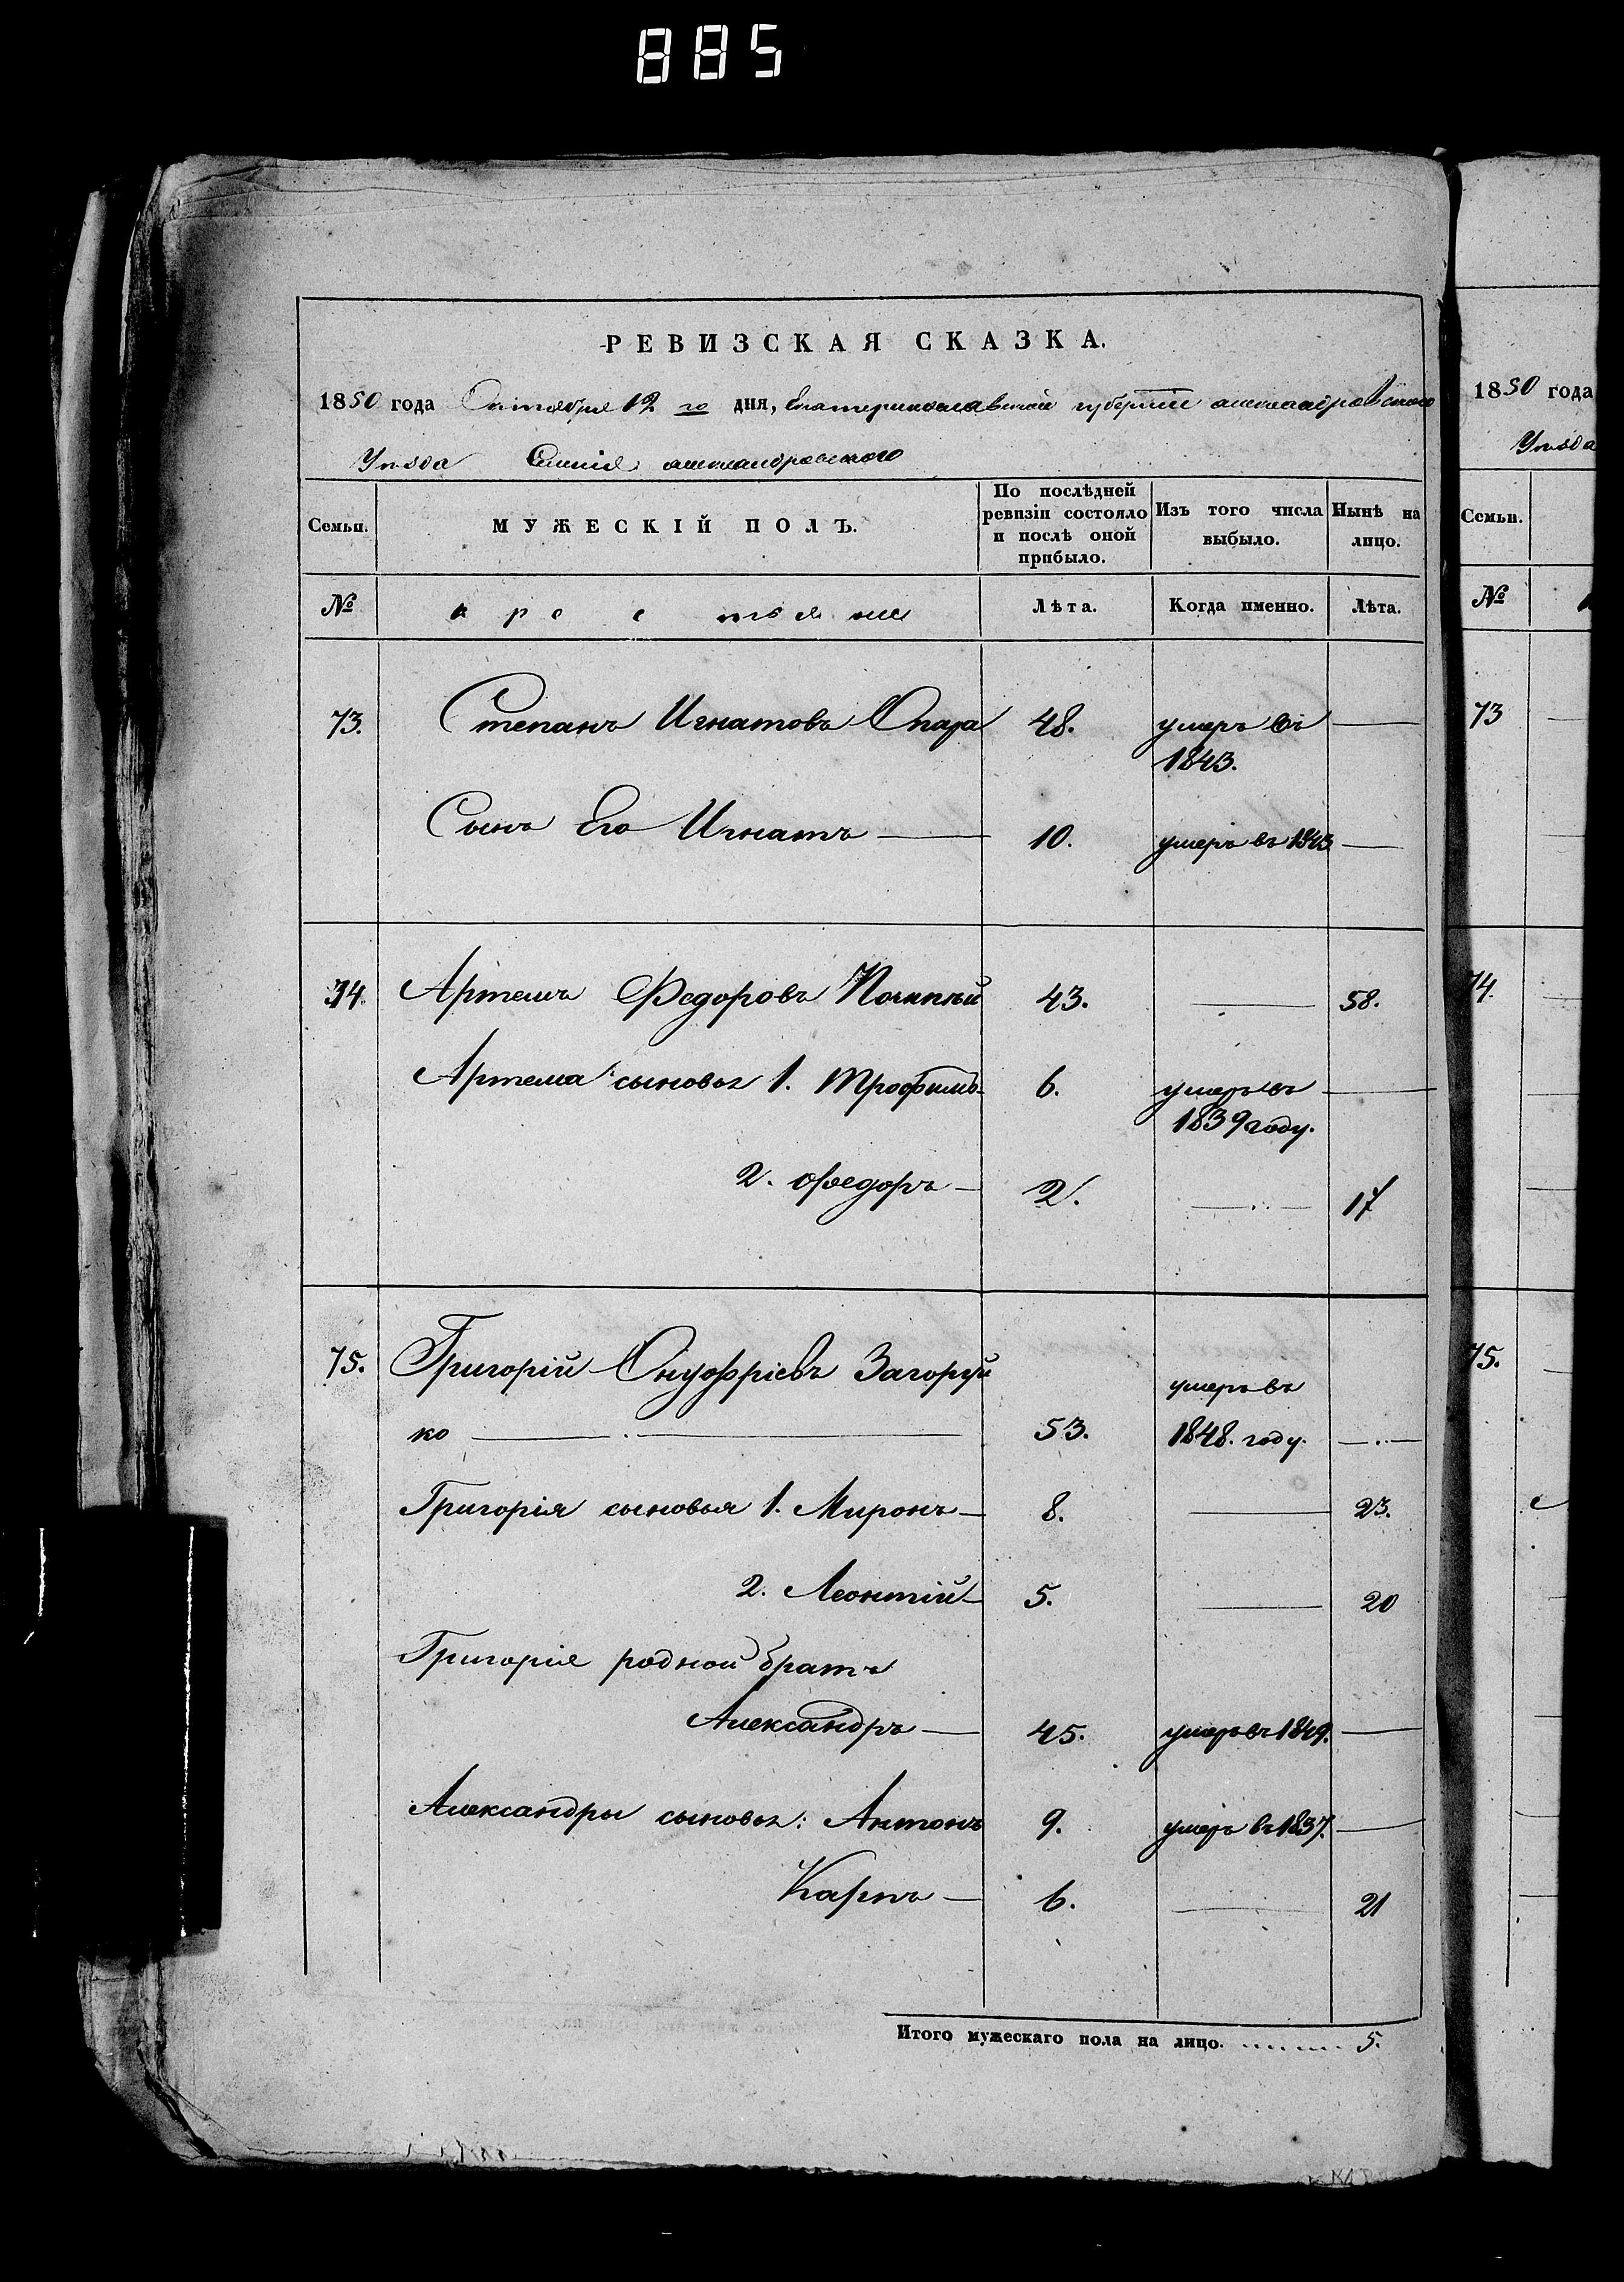 885
РЕВИЗСКАЯ СКАЗКА.
1850 года Октября 12 го дня, Екатеринославской губернiи александровского
Уѣзда Селенія александровского
Семьи. МУЖЕСКІЙ ПОЛЪ. По послѣдней ревизіи состояло и послѣ оной прибыло. Изъ того числа выбыло. Нынѣ на лицо.
№ крестьяне Лѣта. Когда именно. Лѣта.
73. Степанъ Игнатовъ Опара 48. умеръ въ 1843. —
Сынъ Его Игнатъ — 10. умеръ въ 1843 —
74. Артемъ Федоровъ 43. — 58.
Артема сыновья 1. Трофимъ 6. умеръ въ 1839 году. —
2. Федоръ — 2. — 17
75. Григорій Онуфріевъ Загоруй
ко — 53. умеръ въ 1848. году. —
Григорія сыновья 1. Миронъ — 8. — 23.
2. Леонтій — 5. — 20
Григорія родной братъ
Александръ — 45. умеръ въ 1849. —
Александры сыновья: Антонъ 9. умеръ въ 1837. —
Карпъ — 6. — 21
Итого мужескаго пола на лицо. ....... 5.
1850 года
Уѣзда
Семьи.
№
73
74.
75.